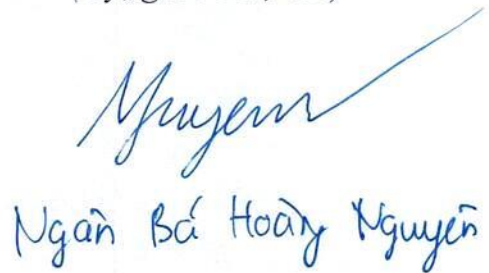 Nguyen
Ngân Bá Hoàng Nguyên